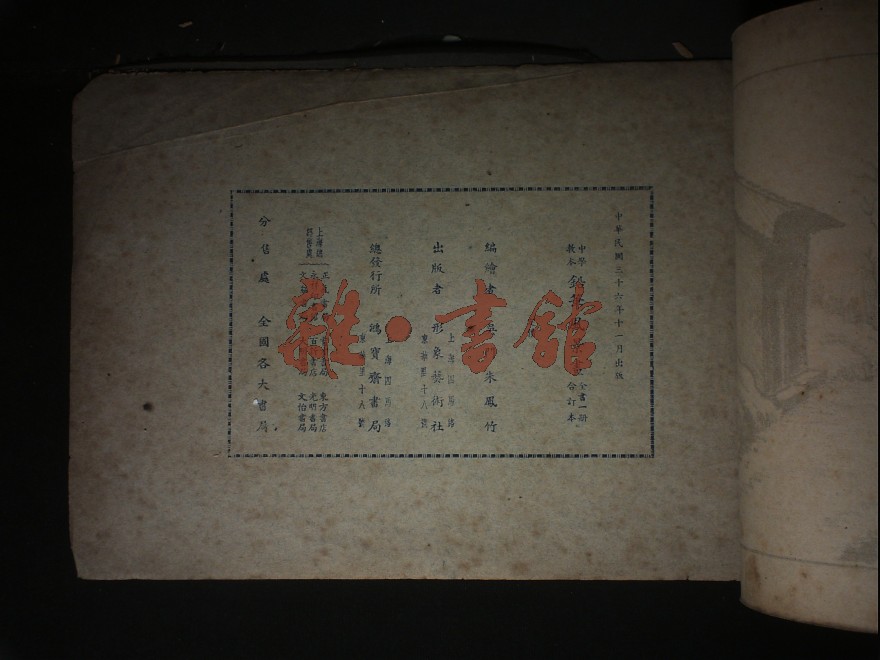 中華民國三十六年十一月出版
中學
教本
鉛
全書一册
合訂本
編繪者
朱鳳竹
出版者 形象藝術社
上海四馬路
東華里十八號
總發行所 鴻寶齋書局
海四馬路
東華里十八號
上海總
經售處
正
書局 東方書店
百
書店 光明書局
文
局 文怡書局
分售處 全國各大書局
雜·書館